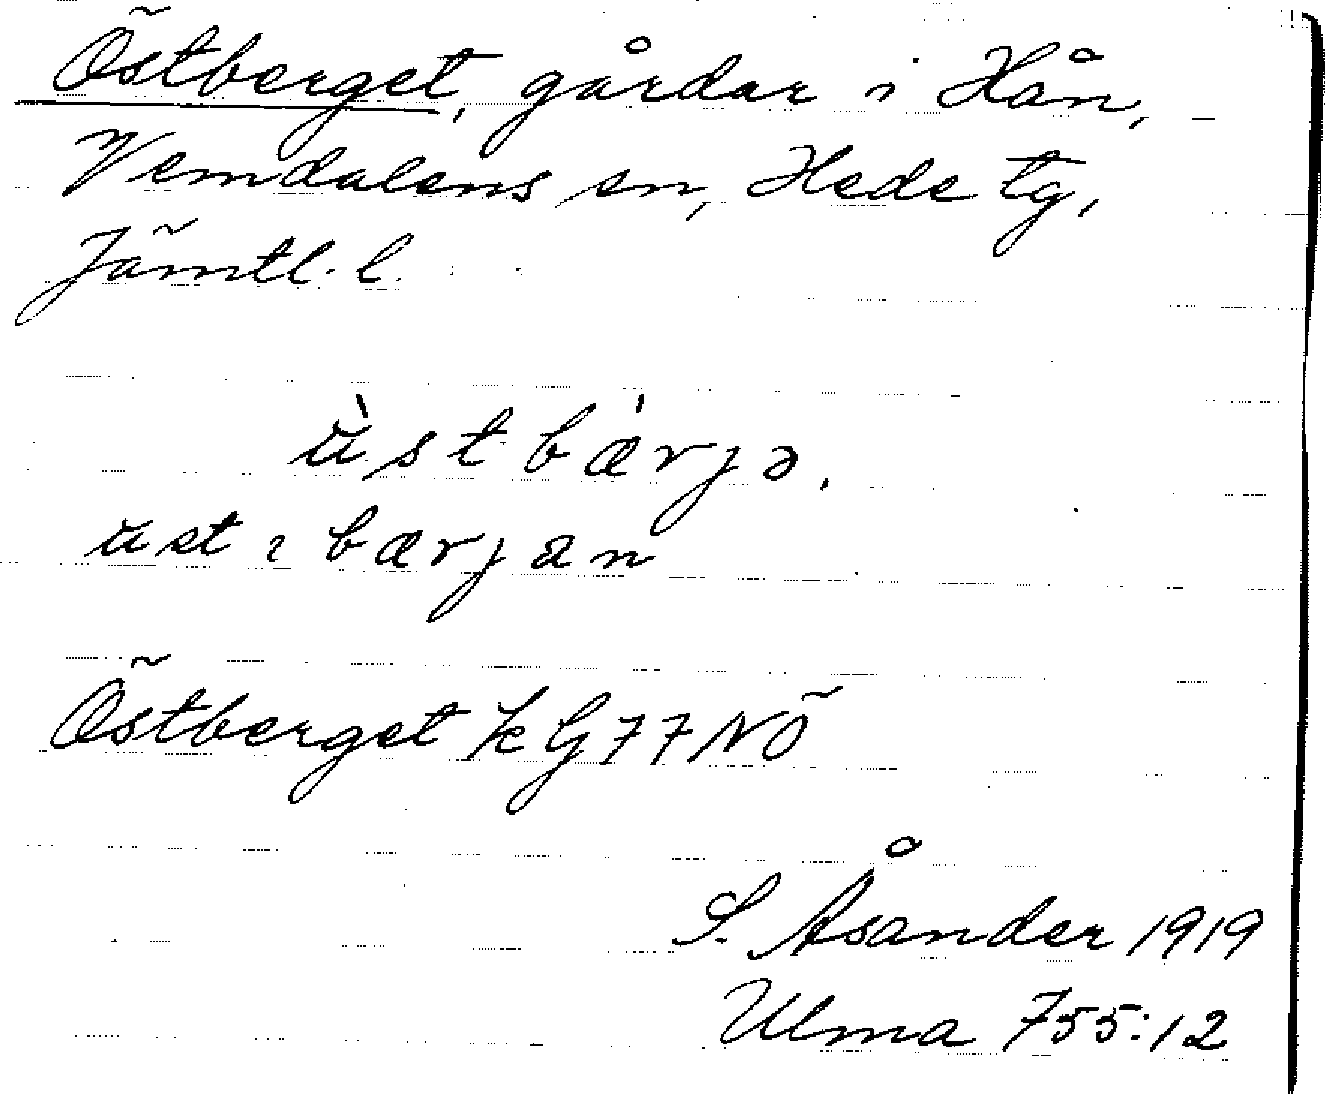 Östberget, gårdar i Hån,
Vemdalens sn, Hede tg,
Jämtl. l.
ùstbæ̀rjə.
ust ı bærjan
Östberget kG77NÖ
S. Åsander 1919
Ulma 755:12